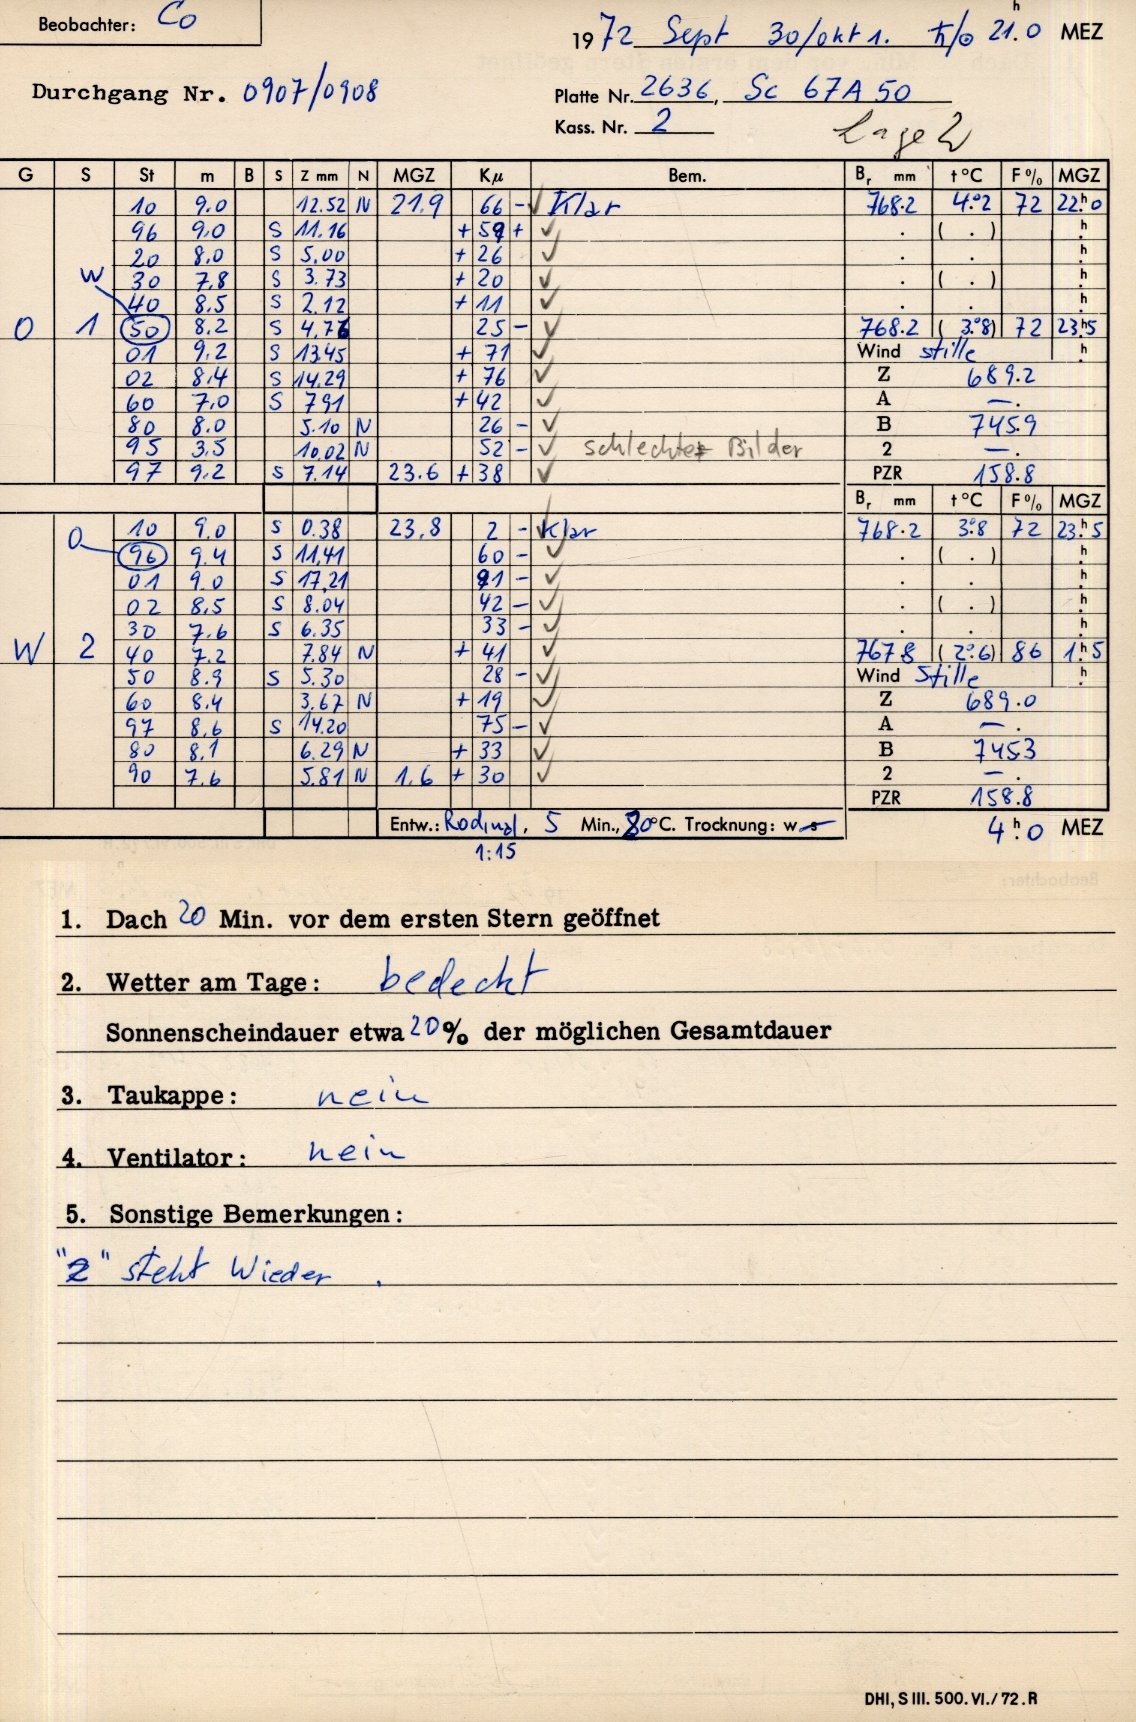 Beobachter: Co
1972 Sept 30/Okt 1. ħ/⊙ 21.0 h MEZ
Durchgang Nr. 0907/0908
Platte Nr. 2636, Sc 67A50
Kass. Nr. 2
Lage 2
G S St m B S Z mm N MGZ Kμ Bem. Br mm t°C F% MGZ
10 9.0 12.52 N 21,9 66 - ✓ Klar 768.2 4.°2 72 22.h0
96 9,0 S 11.16 + 59 + ✓ . ( . ) h
20 8,0 S 5.00 + 26 ✓ . . h
W 30 7,8 S 3.73 + 20 ✓ . ( . ) h
40 8.5 S 2.12 + 11 ✓ . . h
O 1 50 8.2 S 4,76 25 - ✓ 768.2 ( 3.°8) 72 23.h5
01 9,2 S 13.45 + 71 ✓ Wind stille h
02 8,4 S 14,29 + 76 ✓ Z 689.2
60 7,0 S 7,91 + 42 ✓ A —.
80 8.0 5.10 N 26 - ✓ B 745.9
95 3,5 10,02 N 52 - ✓ schlechte Bilder 2 —.
97 9,2 S 7.14 23.6 + 38 ✓ PZR 158.8
Br mm t°C F% MGZ
10 9.0 S 0.38 23,8 2 - Klar 768.2 3.°8 72 23.h5
O 96 9,4 S 11,41 60 - ✓ . ( . ) h
01 9.0 S 17,21 91 - ✓ . . h
02 8,5 S 8.04 42 - ✓ . ( . ) h
30 7.6 S 6.35 33 - ✓ . . h
W 2 40 7.2 7.84 N + 41 ✓ 767.8 ( 2.°6) 86 1.h5
50 8.9 S 5.30 28 - ✓ Wind Stille h
60 8,4 3,67 N + 19 ✓ Z 689.0
97 8,6 S 14.20 75 - ✓ A — .
80 8,1 6.29 N + 33 ✓ B 745.3
90 7.6 5.81 N 1.6 + 30 ✓ 2 — .
PZR 158.8
Entw.: Rodinal, 5 Min., 20°C. Trocknung: w s 4.h0 MEZ
1:15
1. Dach 20 Min. vor dem ersten Stern geöffnet
2. Wetter am Tage: bedeckt
Sonnenscheindauer etwa 20% der möglichen Gesamtdauer
3. Taukappe: nein
4. Ventilator: nein
5. Sonstige Bemerkungen:
"Z" steht Wieder .
DHI, S III. 500. VI./72. R